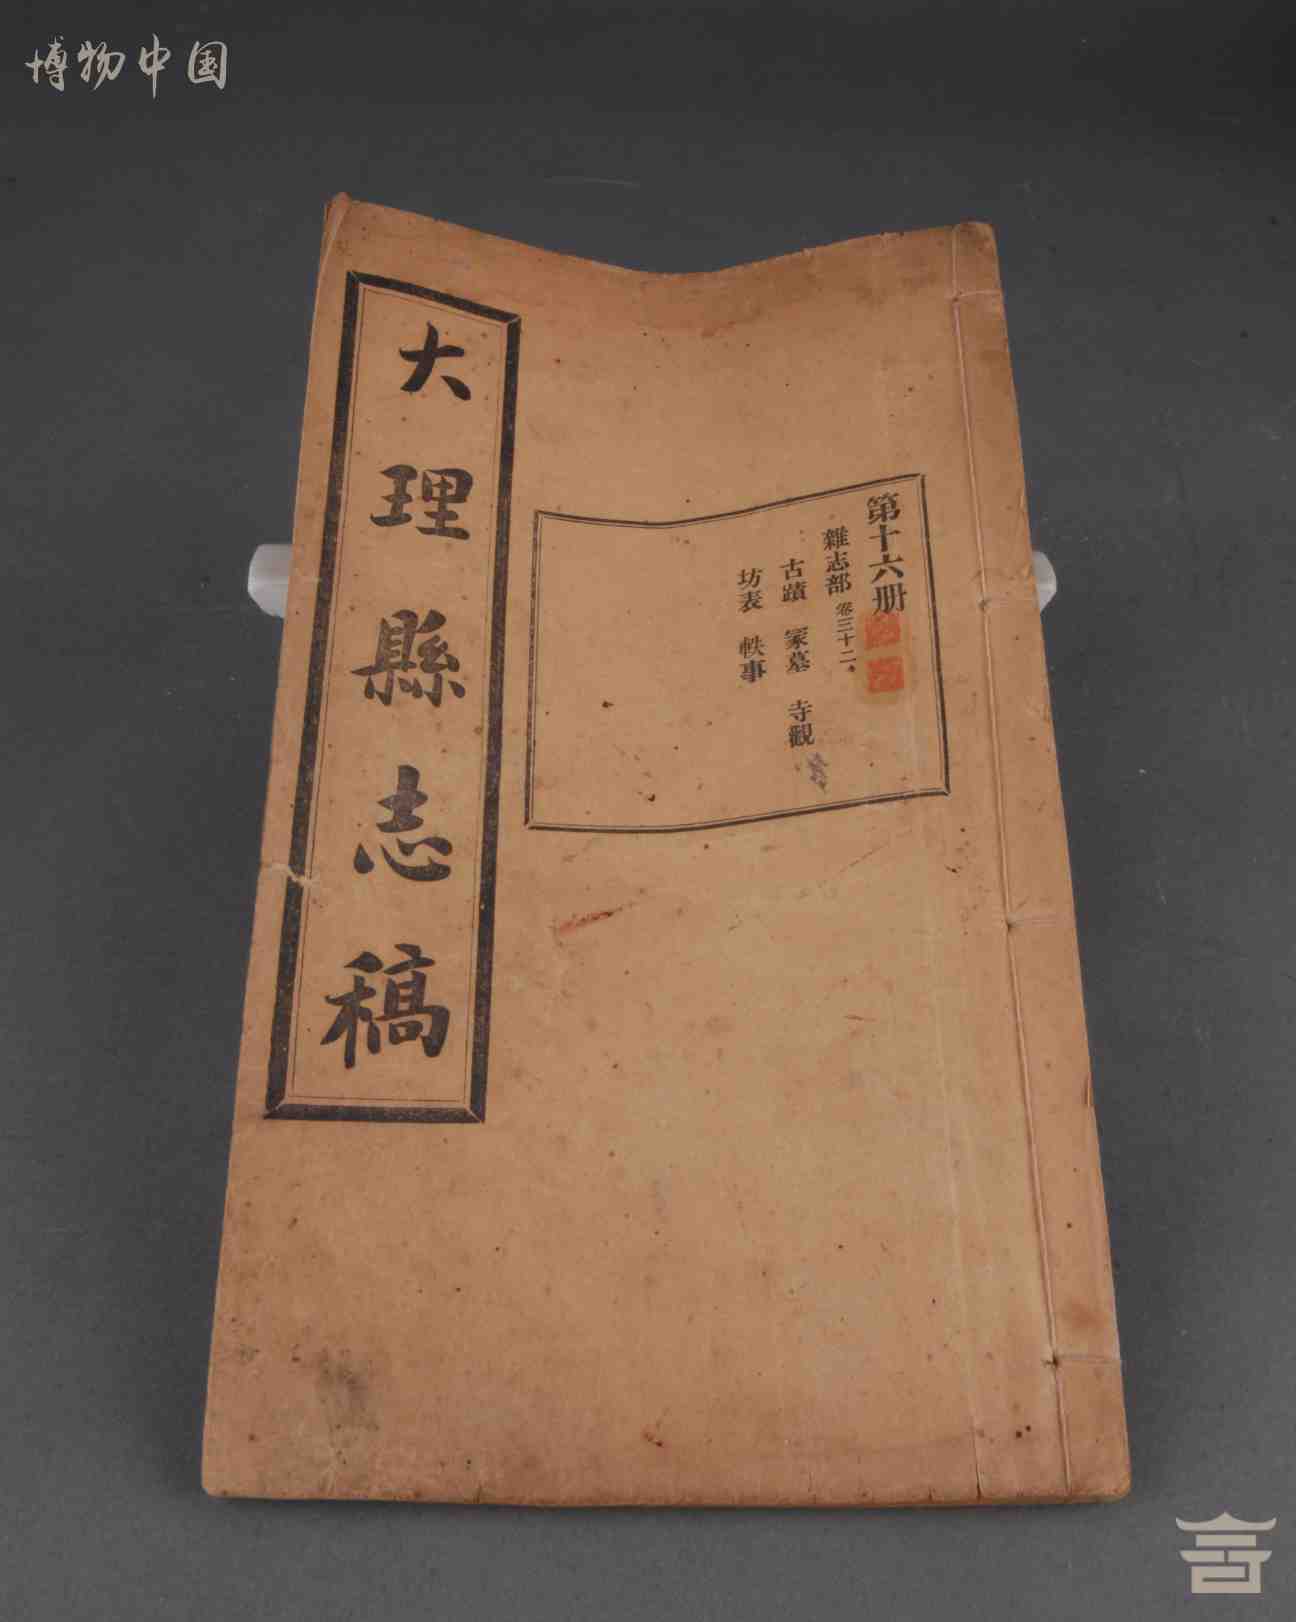 博物中国
大理縣志稿
第十六册
雜志部 卷三十二
古蹟 冢墓 寺觀
坊表 軼事